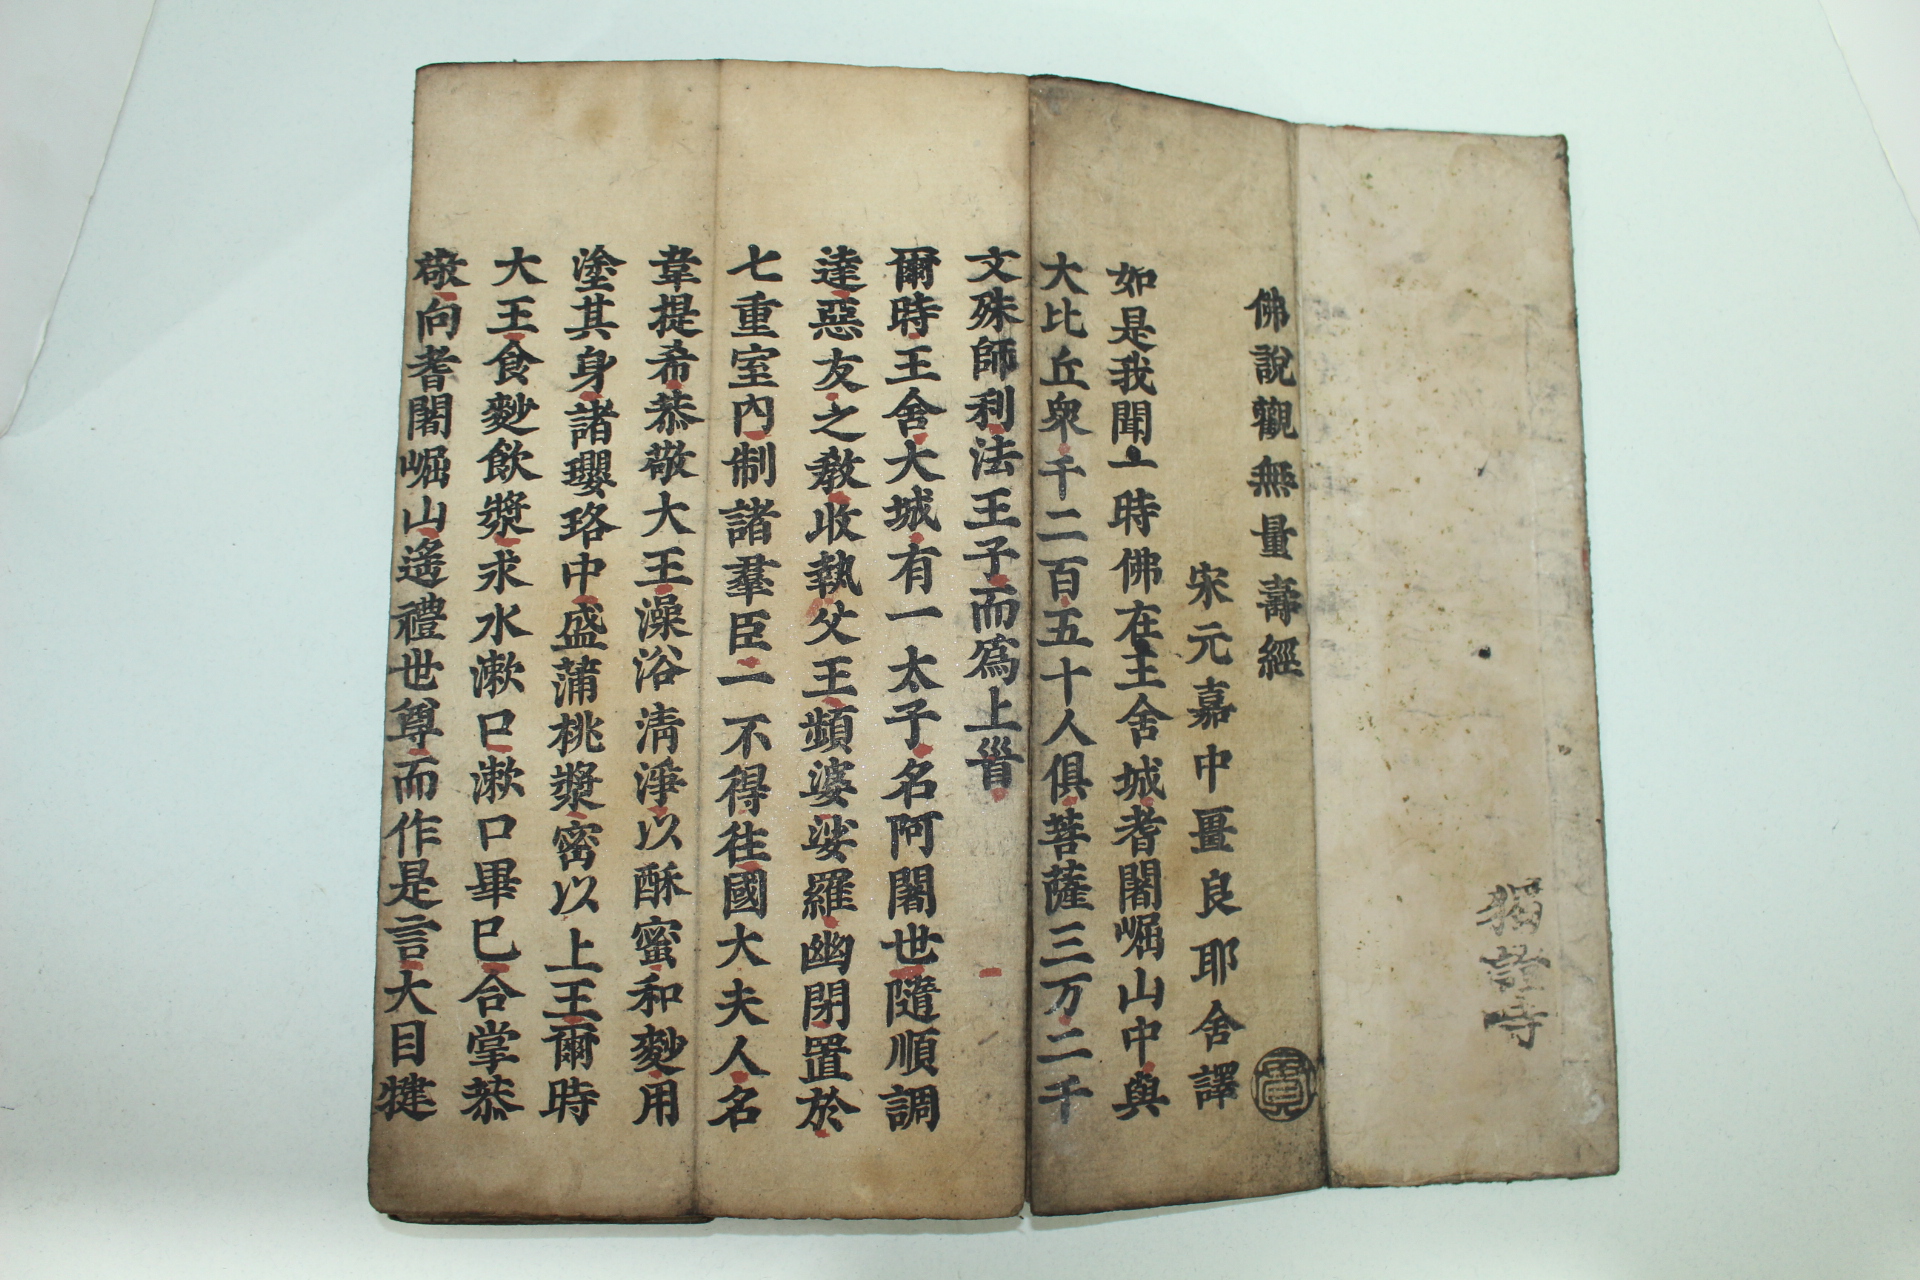 獨證寺
佛說觀無量壽經
宋元嘉中畺良耶舍譯
如是我聞一時佛在王舍城耆闍崛山中與
大比丘衆千二百五十人俱菩薩三万二千
文殊師利法王子而爲上首
爾時王舍大城有一太子名阿闍世隨順調
達惡友之教收執父王頻婆娑羅幽閉置於
七重室內制諸羣臣一不得往國大夫人名
韋提希恭敬大王澡浴淸淨以酥蜜和麨用
塗其身諸瓔珞中盛蒲桃漿密以上王爾時
大王食麨飮漿求水漱口漱口畢已合掌恭
敬向耆闍崛山遙禮世尊而作是言大目犍